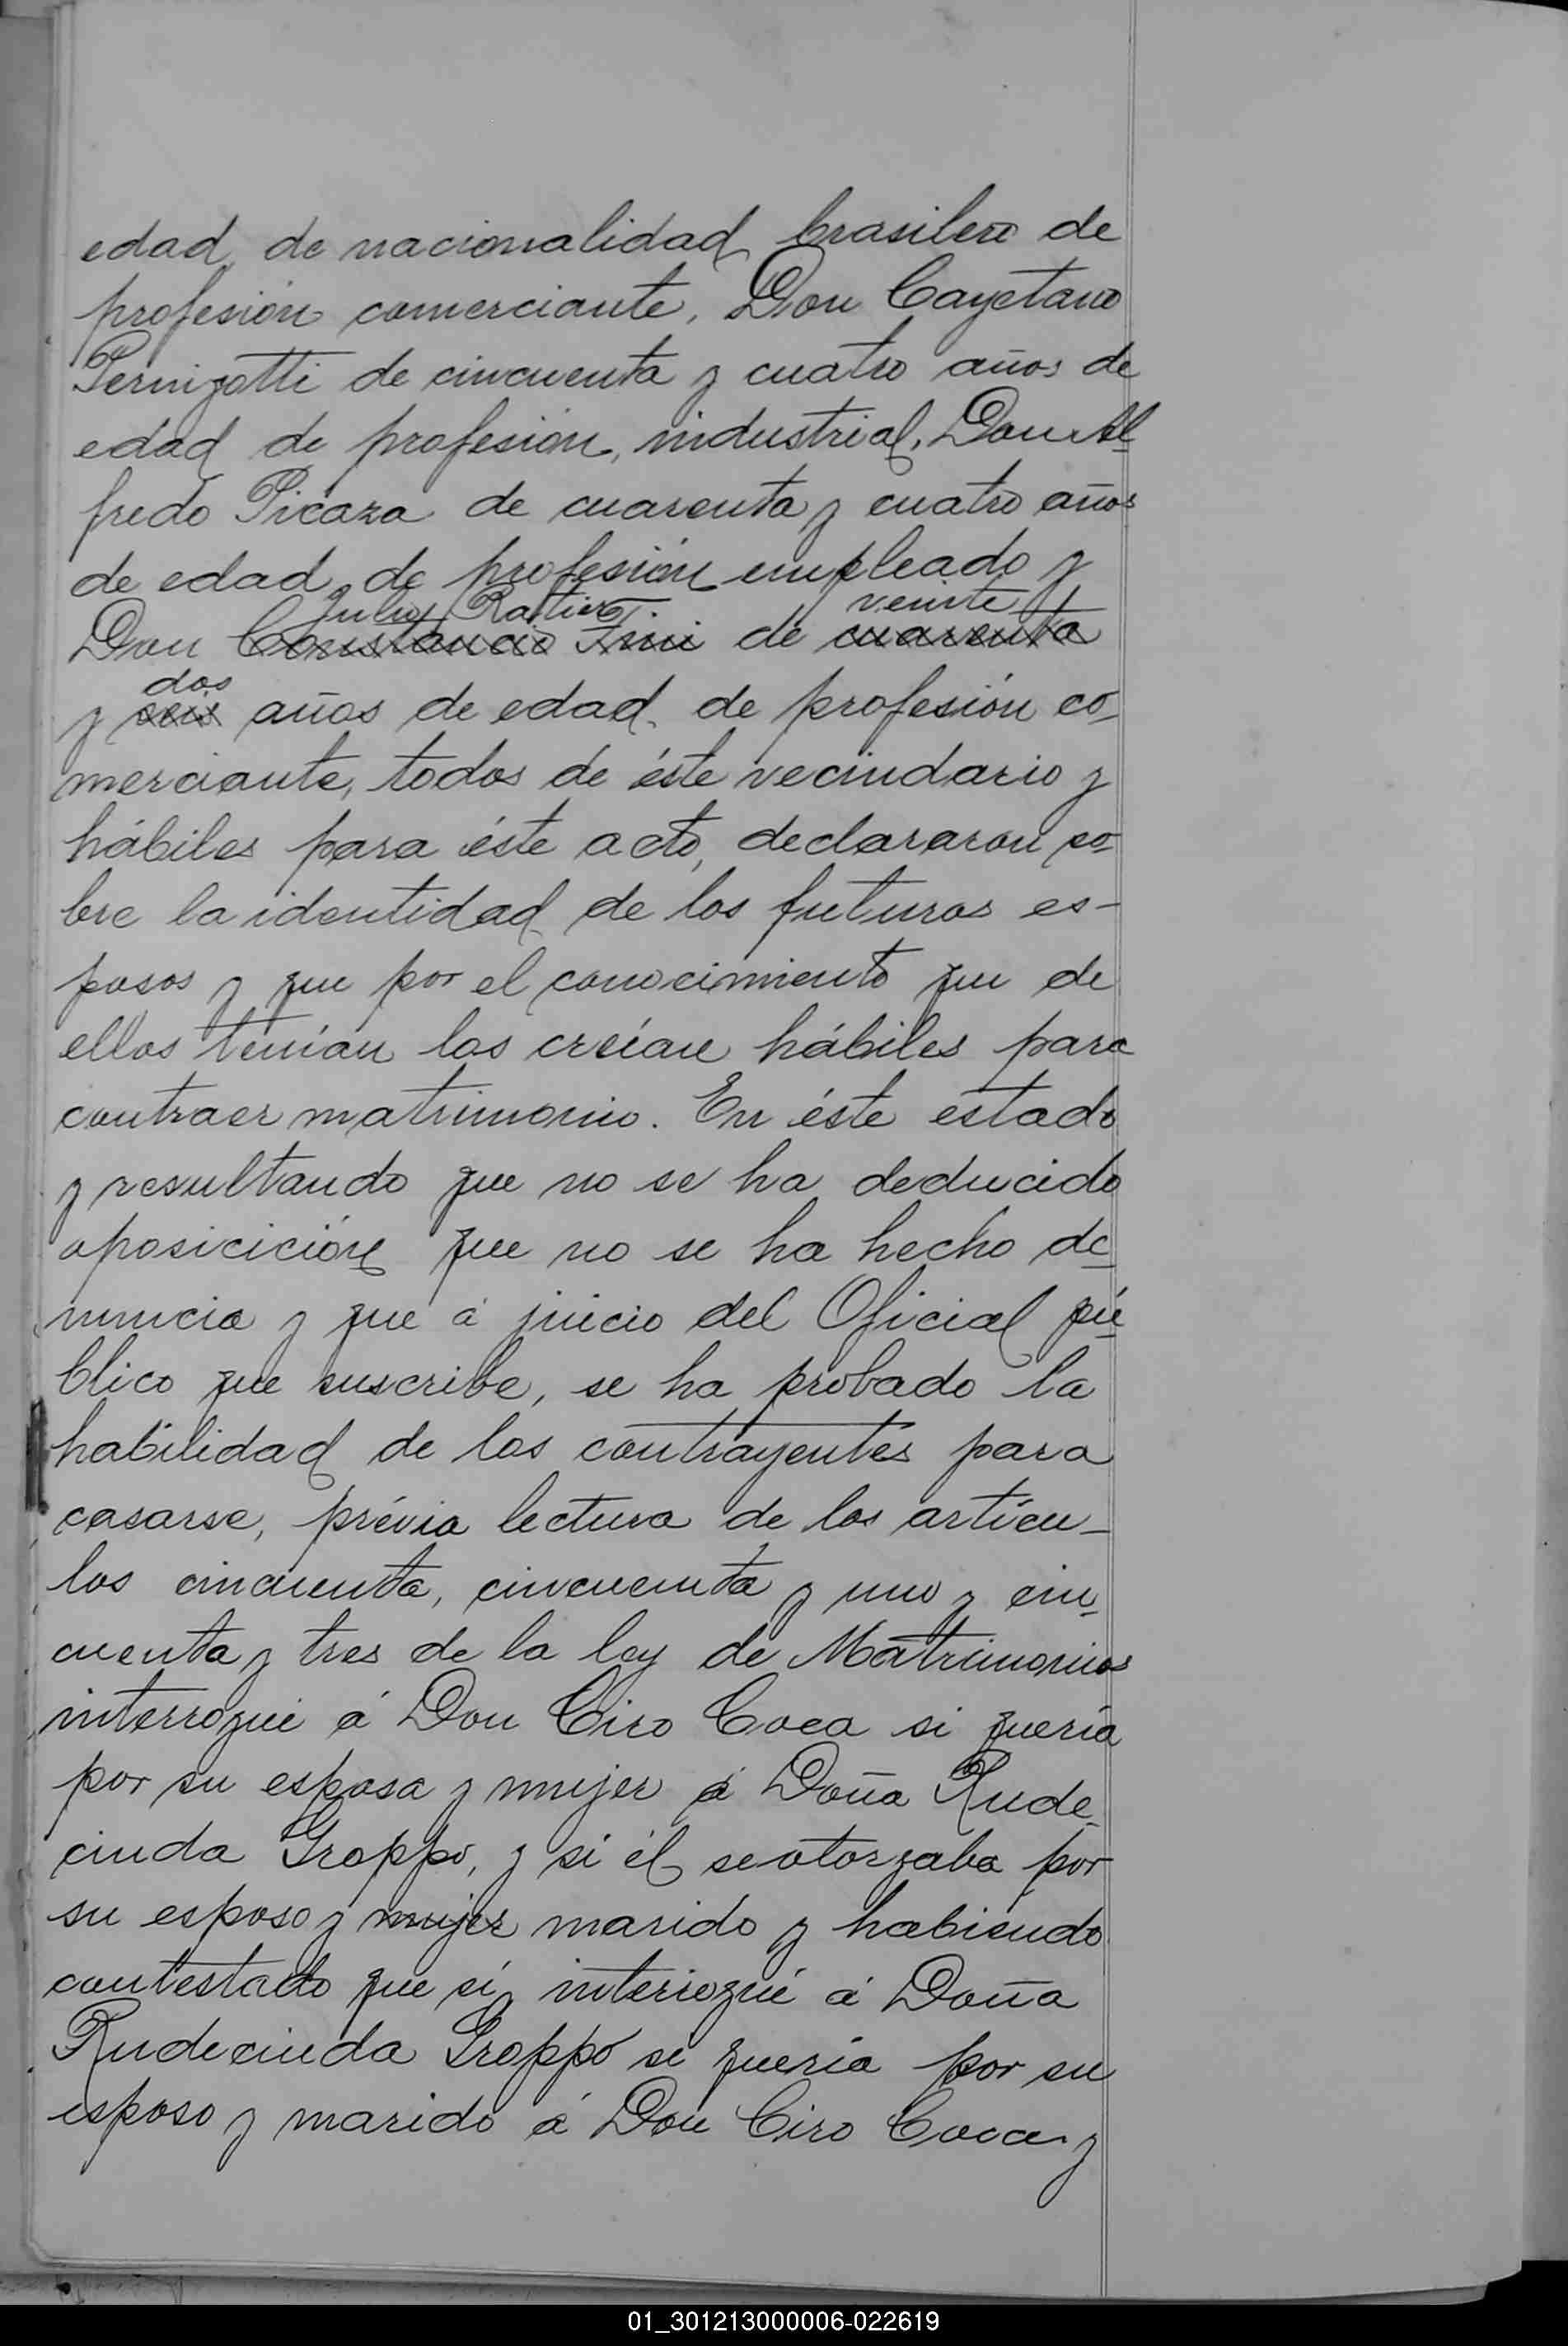 edad, de nacionalidad brasilero de
profesión comerciante, Don Cayetano
Pernigotti de cincuenta y cuatro años de
edad de profesión, industrial, Don Al-
fredo Picaza de cuarenta y cuatro años
de edad, de profesión empleado y
Julio Ratiero veinte
Don Constancio Fini de cuarenta
dos
y seis años de edad, de profesión co-
merciante, todos de éste vecindario y
hábiles para éste acto, declararon so-
bre la identidad de los futuros es-
posos y que por el conocimiento que de
ellos tenían los creían hábiles para
contraer matrimonio. En éste estado
y resultando que no se ha deducido
oposicición que no se ha hecho de-
nuncia y que á juicio del Oficial pú-
blico que suscribe, se ha probado la
habilidad de los contrayentes para
casarse, prévia lectura de los artícu-
los cincuenta, cincuenta y uno y cin-
cuenta y tres de la ley de Matrimonios
interrogué á Don Ciro Coca si quería
por su esposa y mujer á Doña Rude-
cinda Groppo, y si él se otorgaba por
su esposo y mujer marido y habiendo
contestado que sí, interrogué á Doña
Rudecinda Groppo si quería por su
esposo y marido á Don Ciro Coca y
01_301213000006-022619